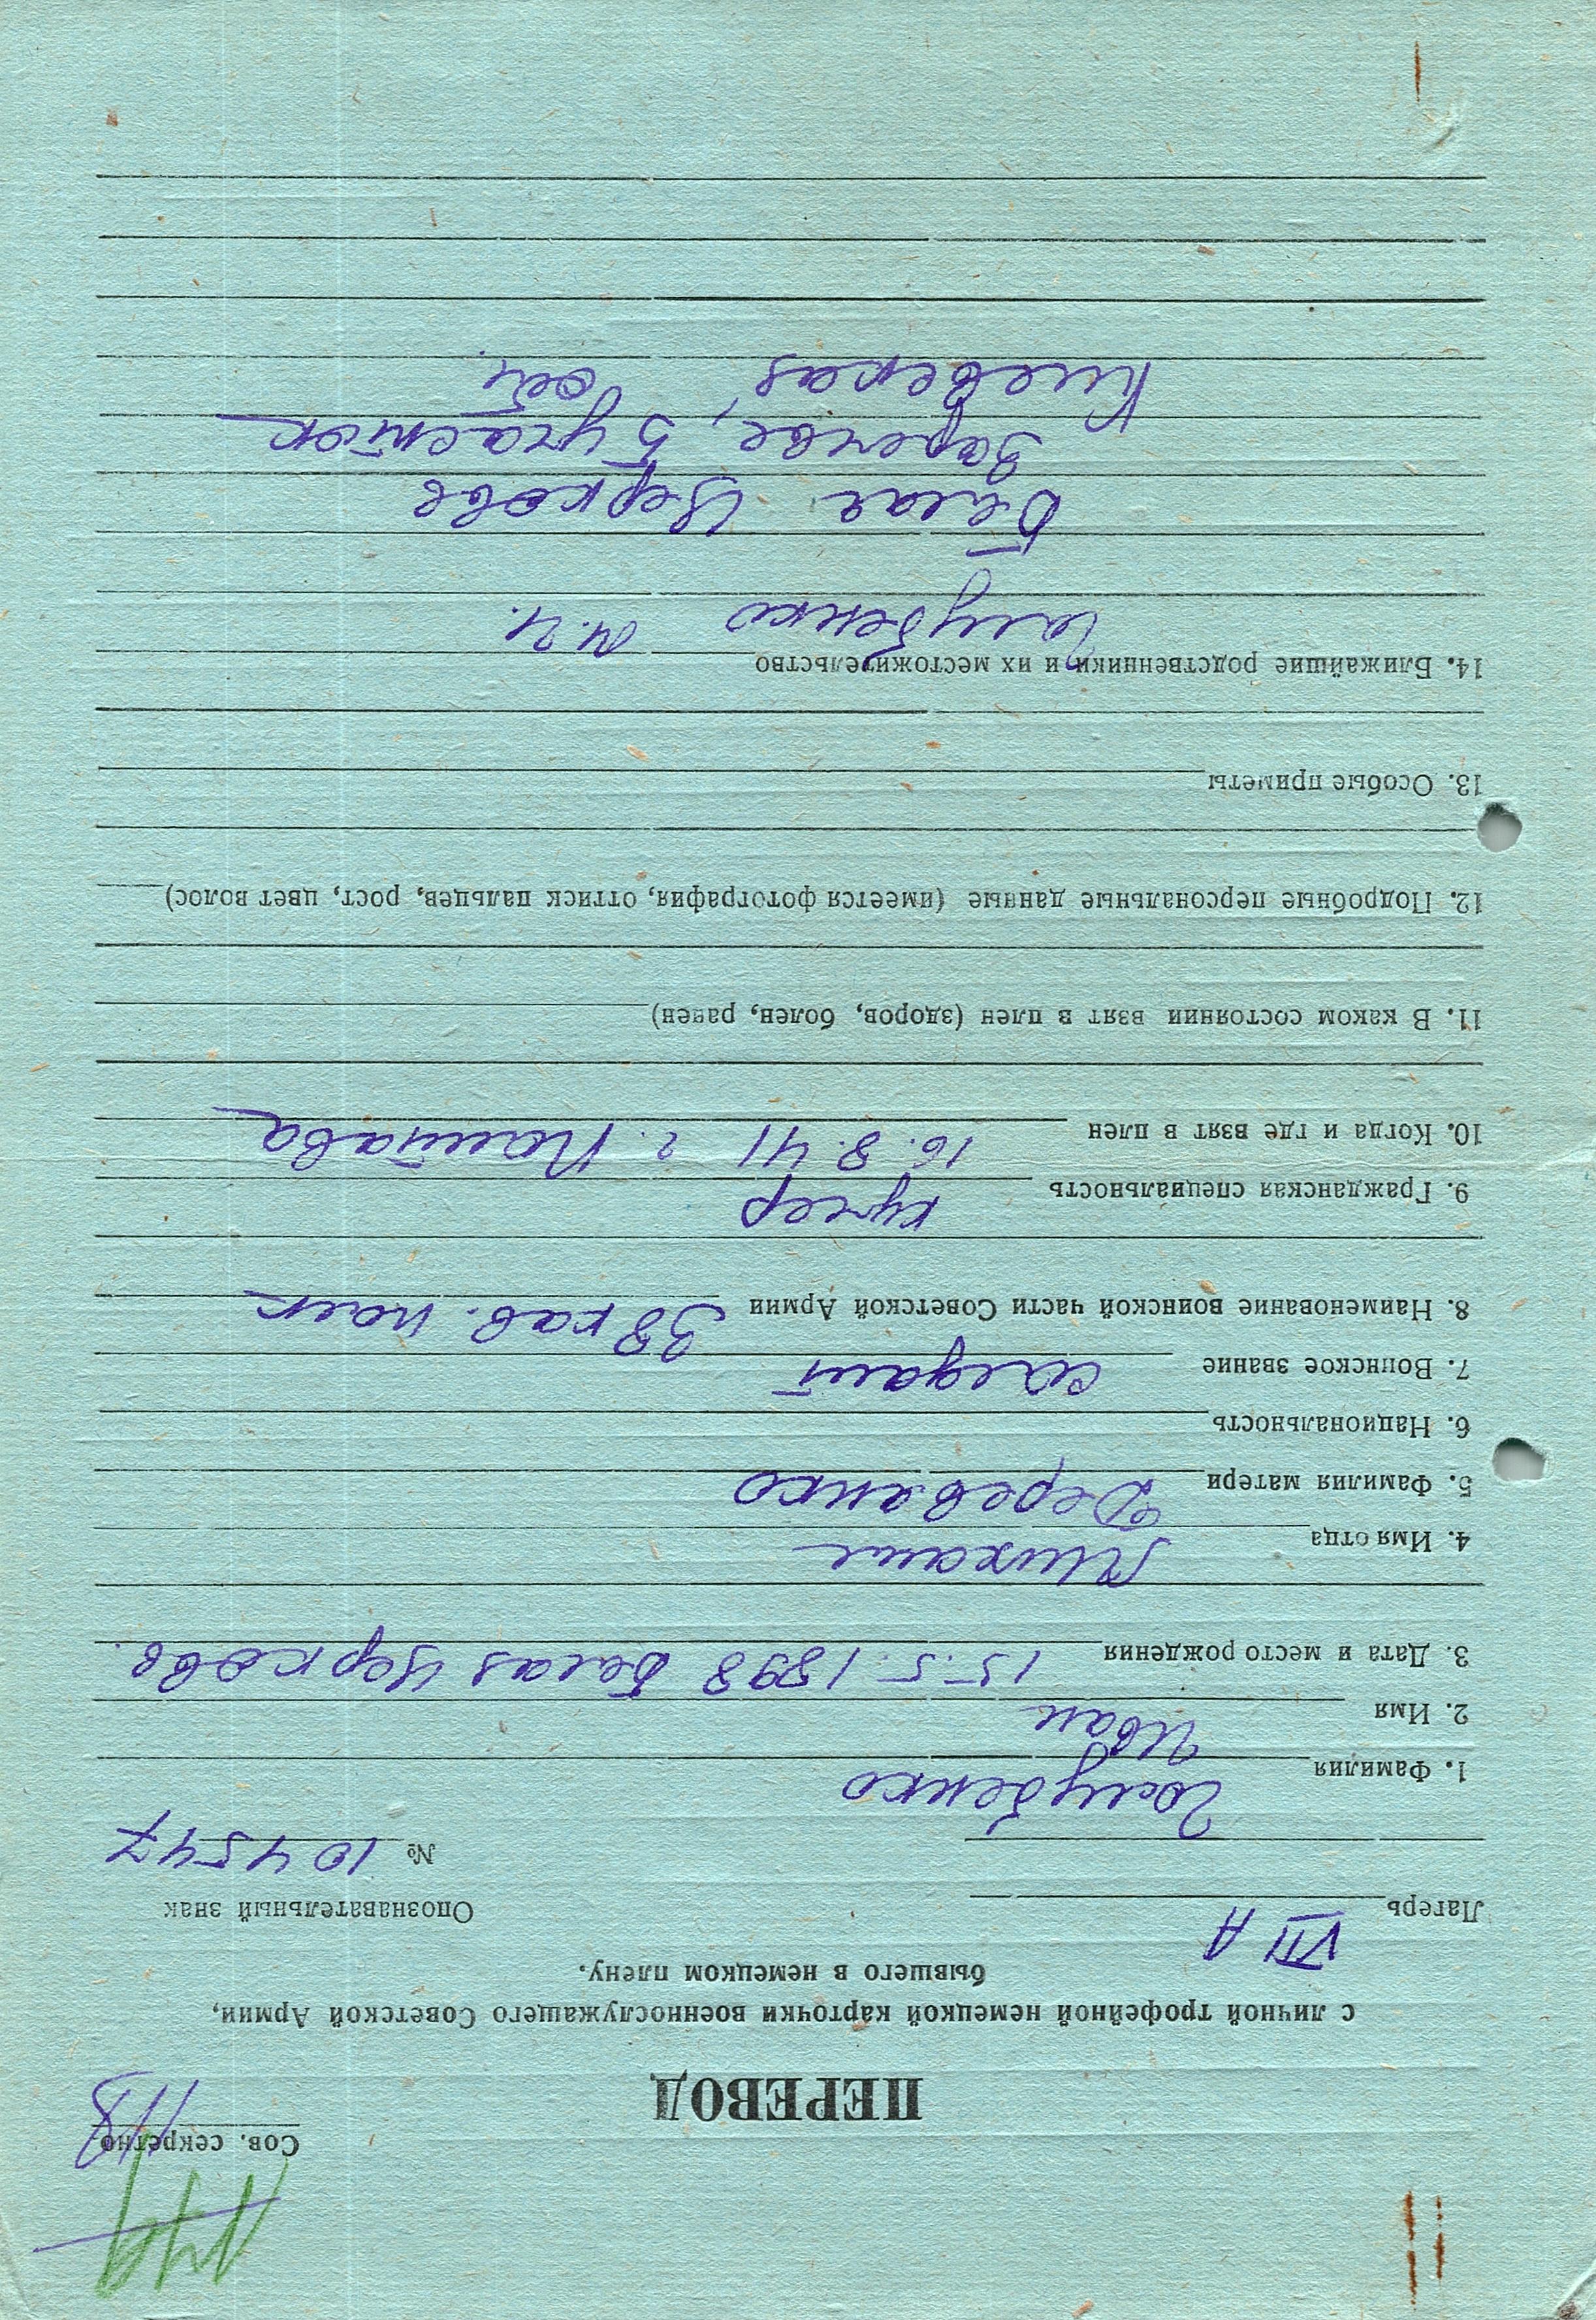 Сов. секретно
118
ПЕРЕВОД
с личной трофейной немецкой карточки военнослужащего Советской Армии,
бывшего в немецком плену.
Лагерь VII A Опознавательный знак
№ 104547
1. Фамилия Голубенко
2. Имя Иван
3. Дата и место рождения 15.5.1898 Белая Церковь
4. Имя отца Михаил
5. Фамилия матери Деревянко
6. Национальность
7. Воинское звание солдат
8. Наименование воинской части Советской Армии 38 кав. полк
9. Гражданская специальность кучер
10. Когда и где взят в плен 16.8.41 г. Полтава
11. В каком состоянии взят в плен (здоров, болен, ранен)
12. Подробные персональные данные (имеется фотография, оттиск пальцев, рост, цвет волос)
13. Особые приметы
14. Ближайшие родственники и их местожительство
Голубенко М.И.
Белая Церковь
Заречье, 5 участок
Киевская обл.